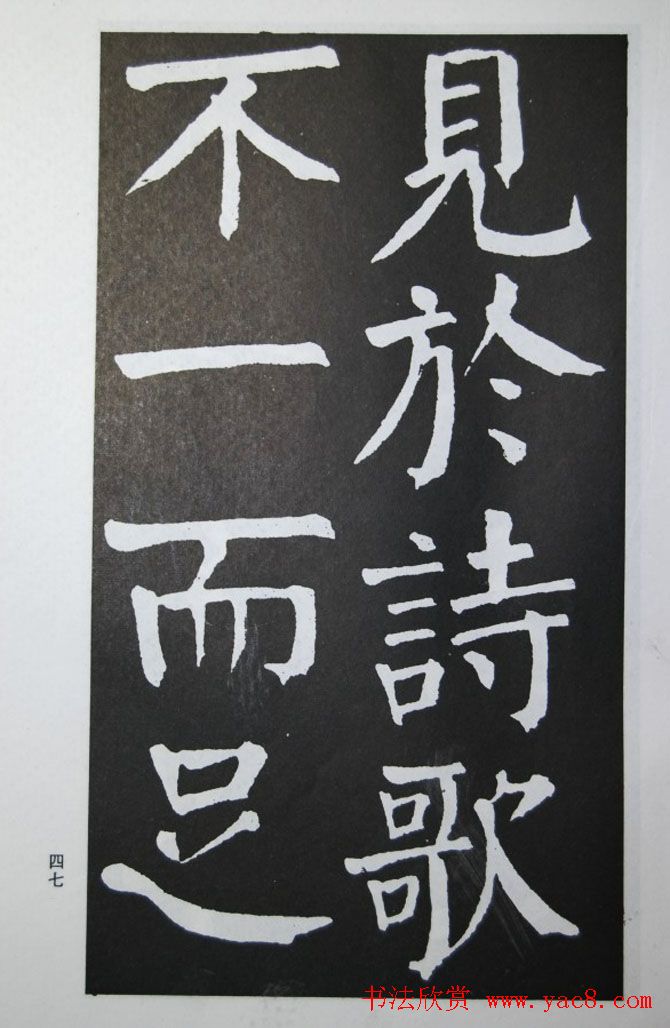 見於詩歌
不一而足
四七
书法欣赏 www.yac8.com